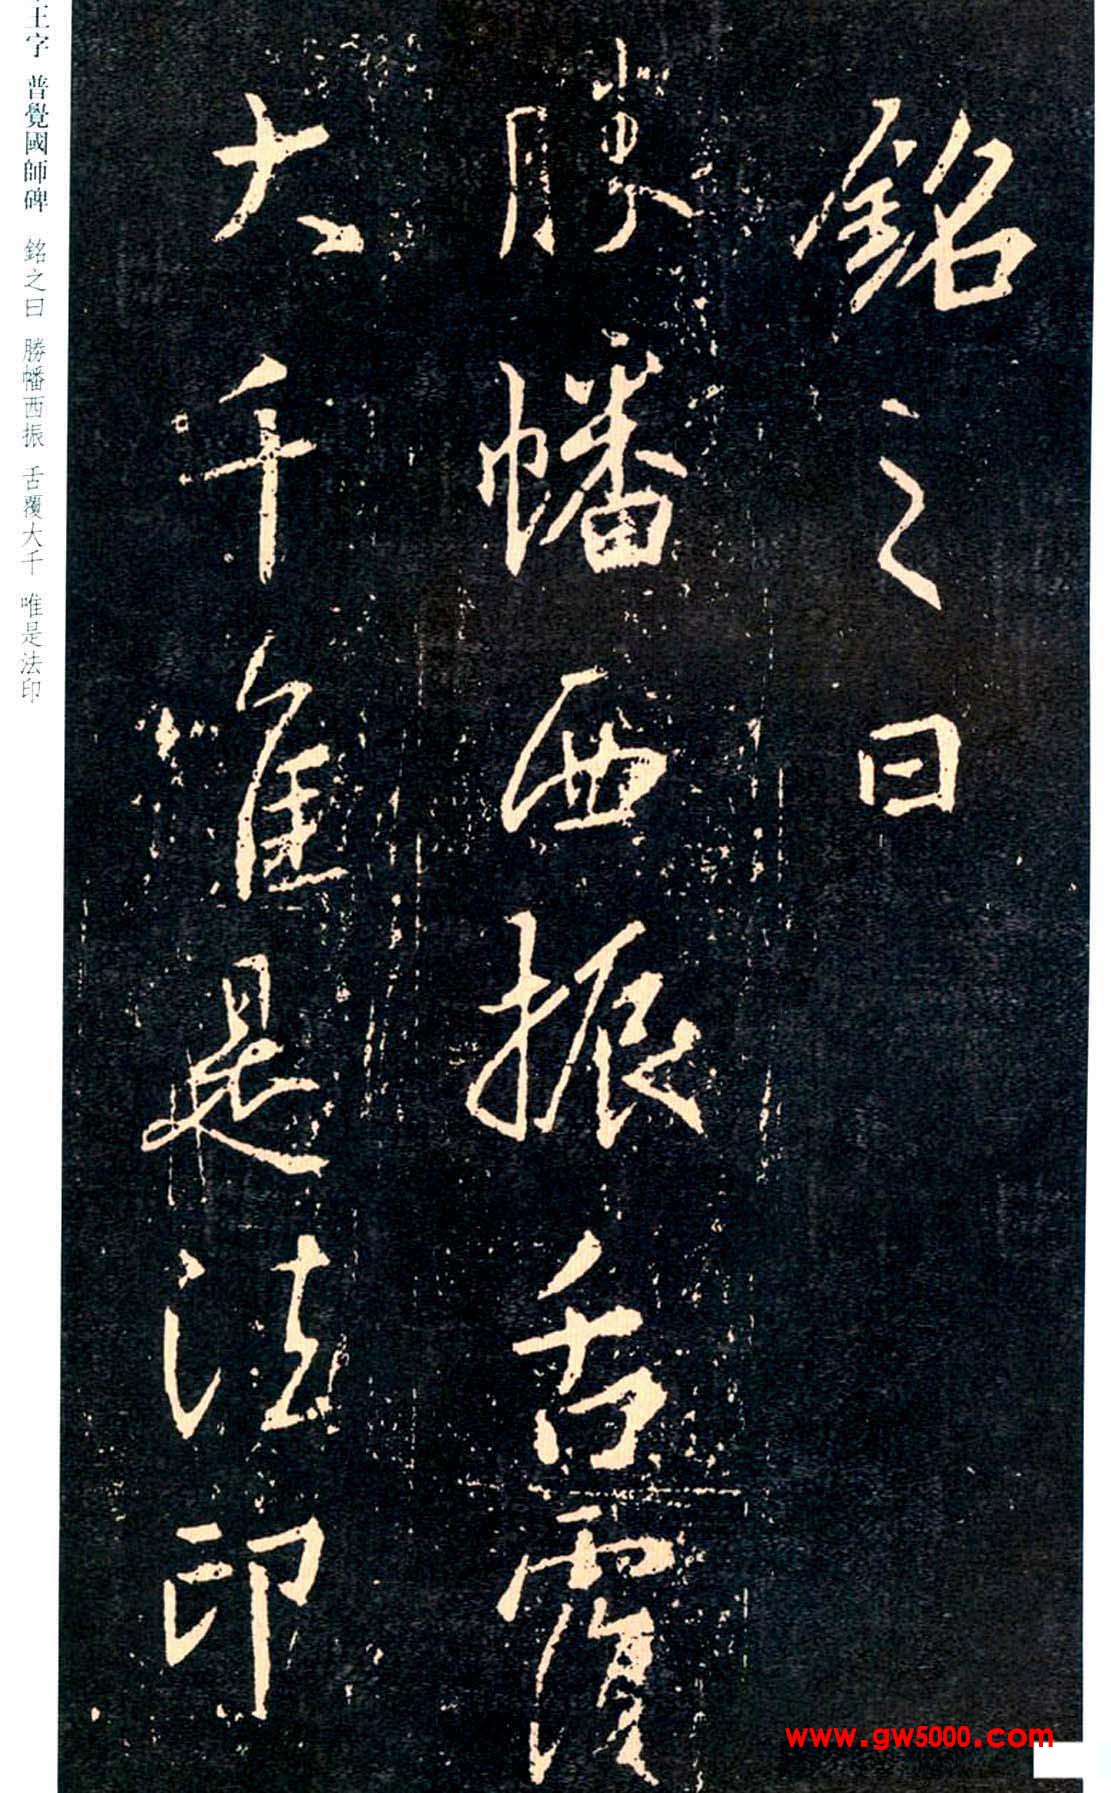 銘之曰
勝幡西振舌覆
大千唯是法印
王字 普覺國師碑 銘之曰 勝幡西振 舌覆大千 唯是法印
www.gw5000.com